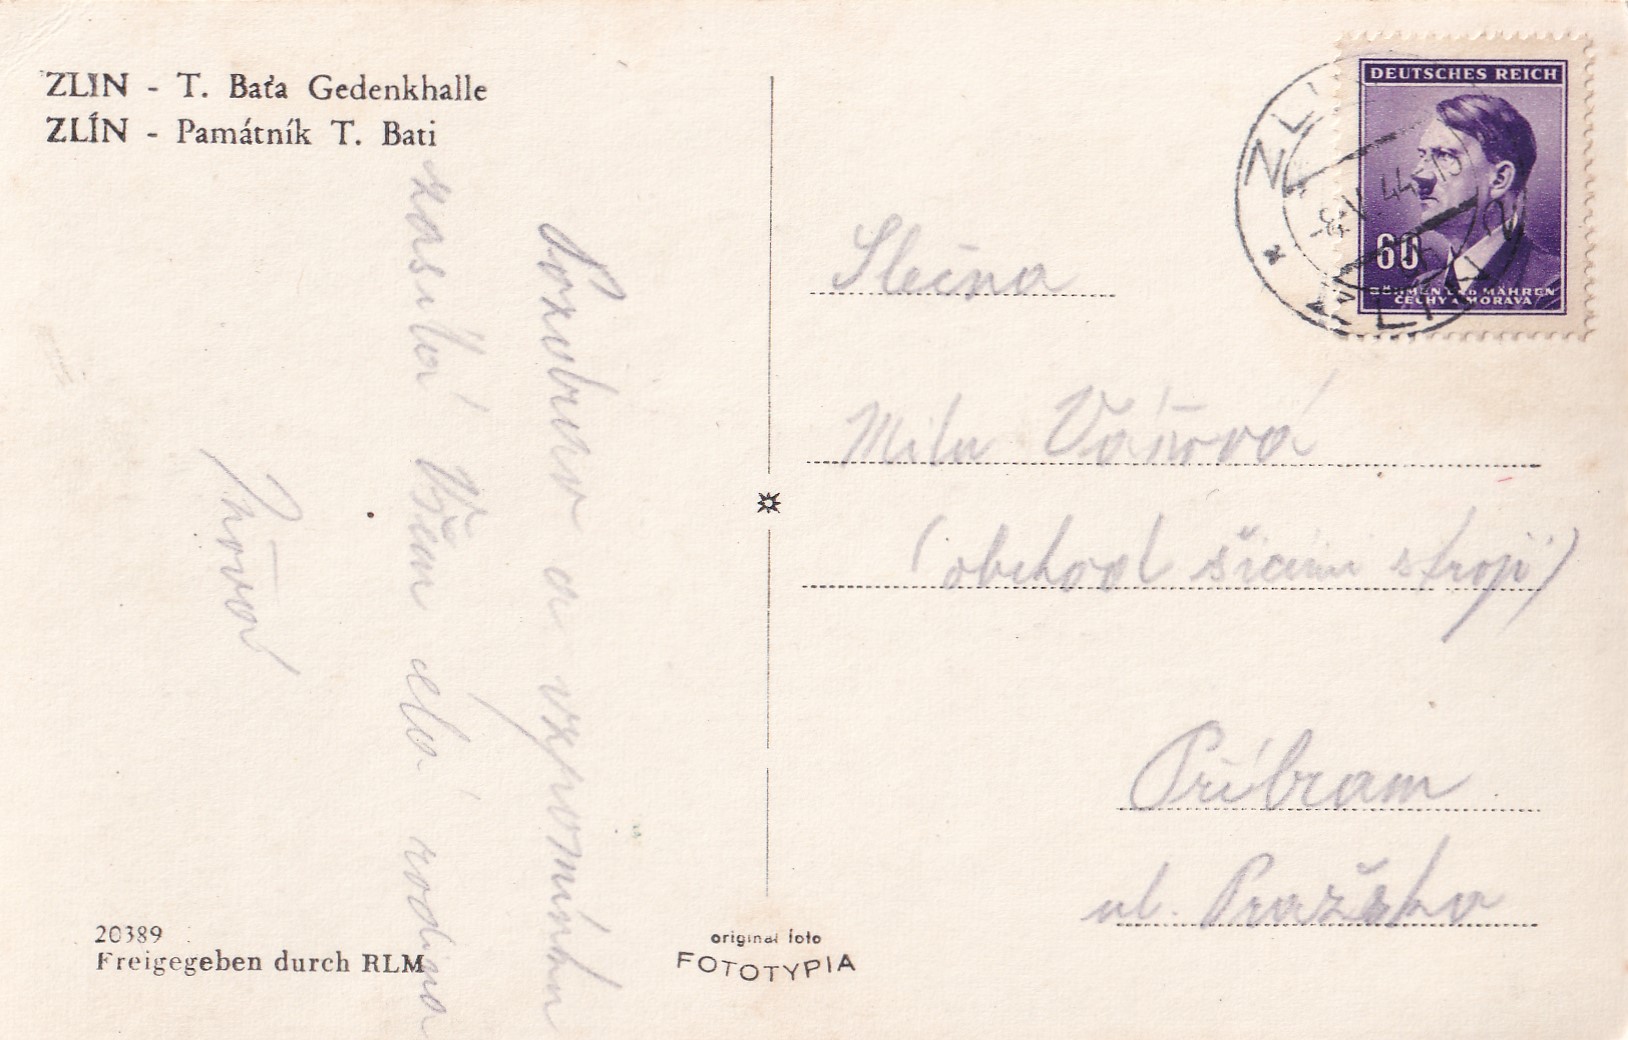 ZLIN - T. Baťa Gedenkhalle
ZLÍN - Památník T. Bati
Pozdrav a vzpomínku
zasílá Všem celá rodina
DEUTSCHES REICH
60
BÖHMEN UND MÄHREN
ČECHY A MORAVA
ZLIN
-8.V.44-15
ZLÍN
Slečna
Mila Váňová
(obchod šicími stroji)
Příbram
ul. Pražská
20389
Freigegeben durch RLM
original foto
FOTOTYPIA